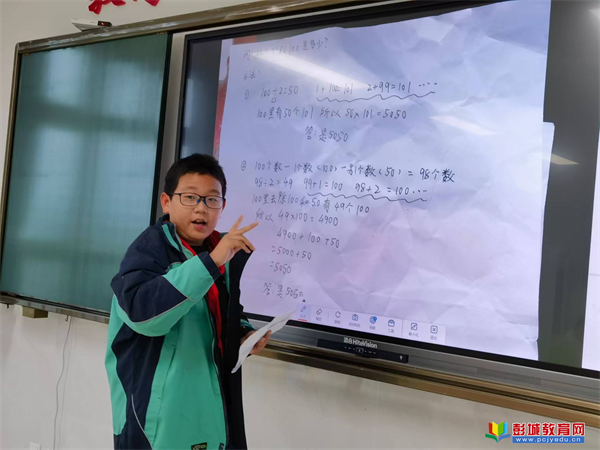 是多少?
① 100÷2=50 1+100=101 2+99=101 ……
100里有50个101 所以 50×101=5050
答:是5050
② 100个数-1个数(100)-1个数(50)=98个数
98÷2=49 99+1=100 98+2=100……
100里去除100和50有49个100
所以 49×100=4900
4900+100+50
=5000+50
=5050
答:是5050
HiteVision
彭城教育网
www.pcjyedu.cn